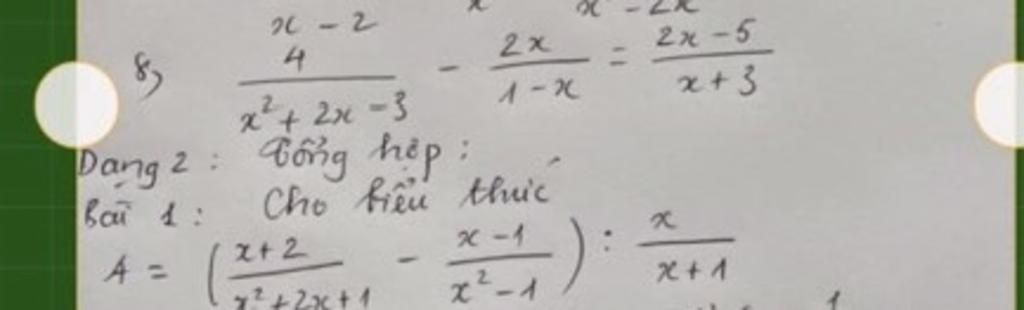 x - 2
x² - 2x
8) 4/(x² + 2x - 3) - 2x/(1 - x) = (2x - 5)/(x + 3)
Dạng 2 : Tổng hợp :
Bài 1 : Cho biểu thức
A = ((x + 2)/(x² + 2x + 1) - (x - 1)/(x² - 1)) : x/(x + 1)